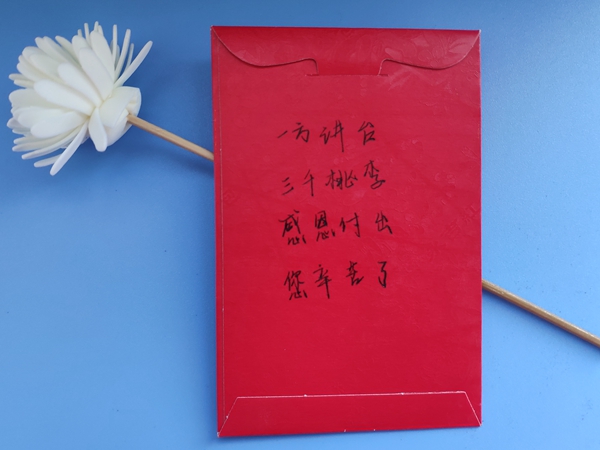 一方讲台
三千桃李
感恩付出
您辛苦了